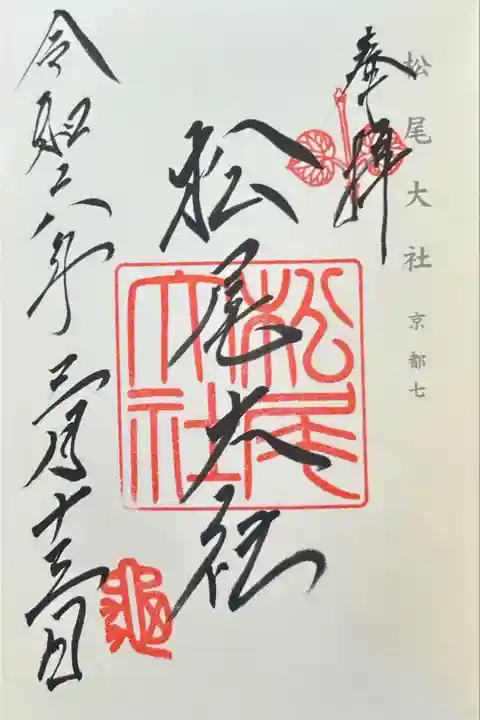 松尾大社 京都七
奉拝
松尾大社
松尾大社
令和六年 三月十三日
龜